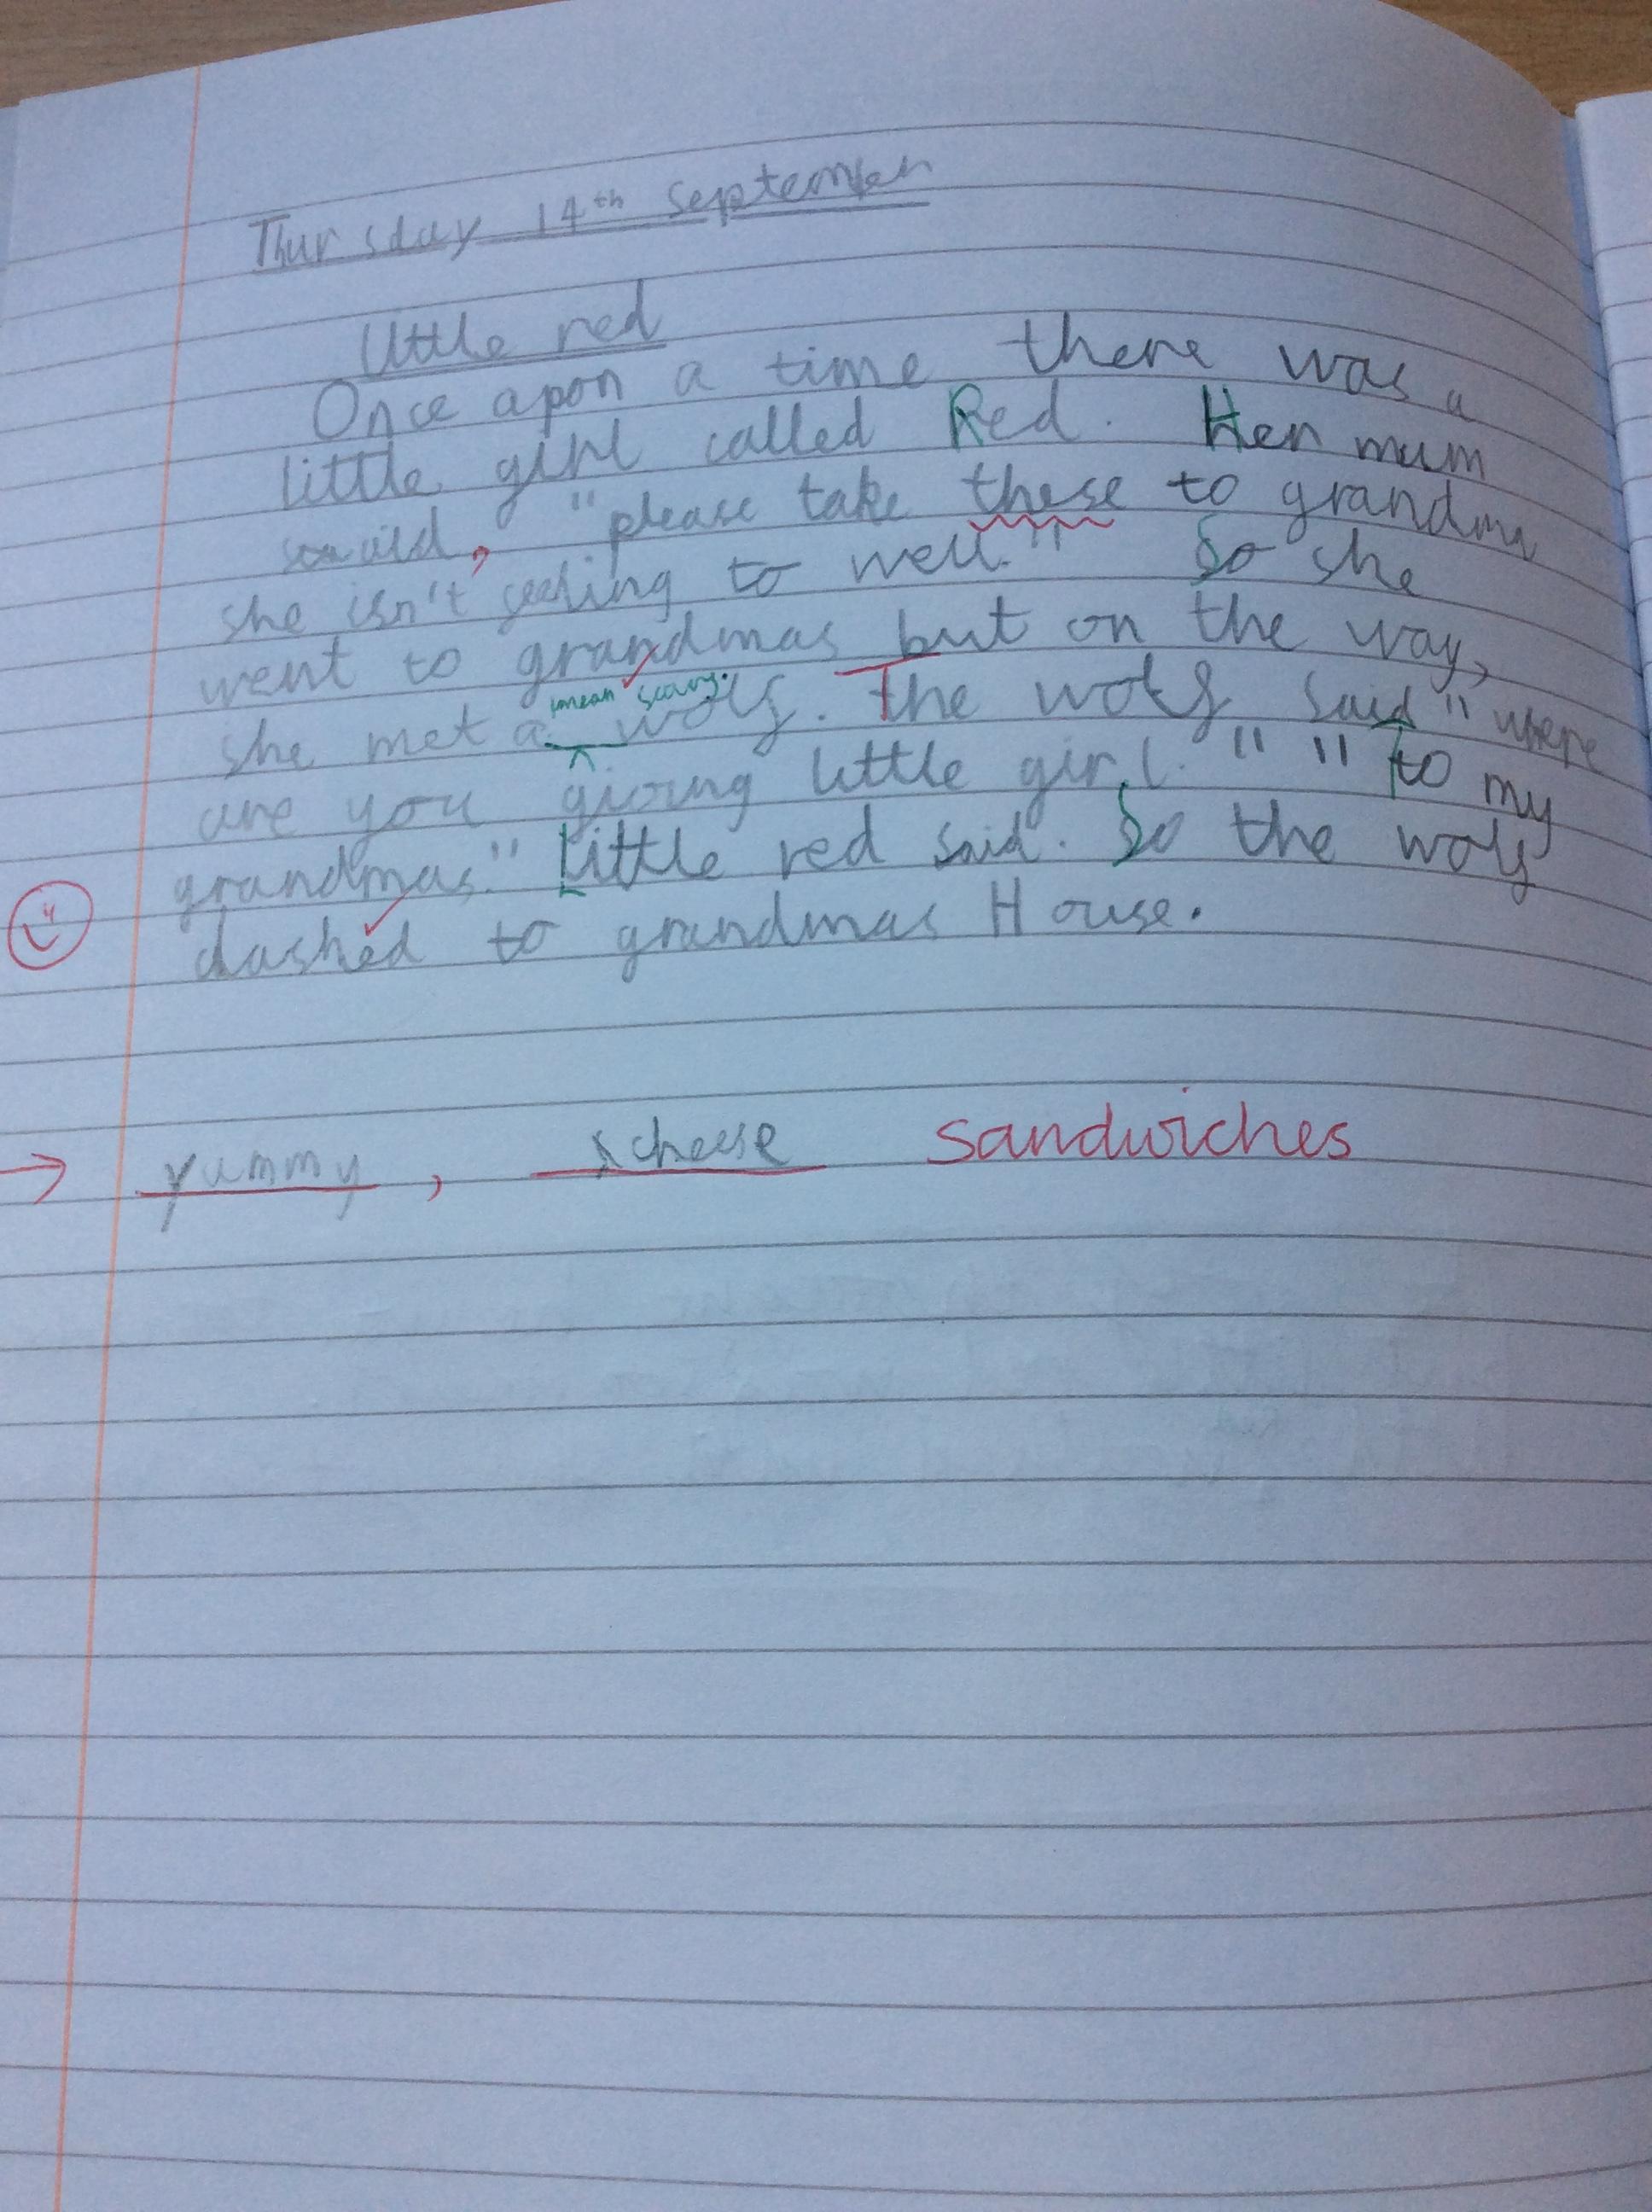 Thursday 14th September
little red
Once apon a time there was a
little girl called Red. Her mum
said, "please take these to grandma
she isn't feeling to well." So she
went to grandmas but on the way,
mean scary.
she met a wolf. The wolf said "where
are you gioing little girl." "to my
grandmas." Little red said. So the wolf
dashed to grandmas House.
yummy, cheese sandwiches